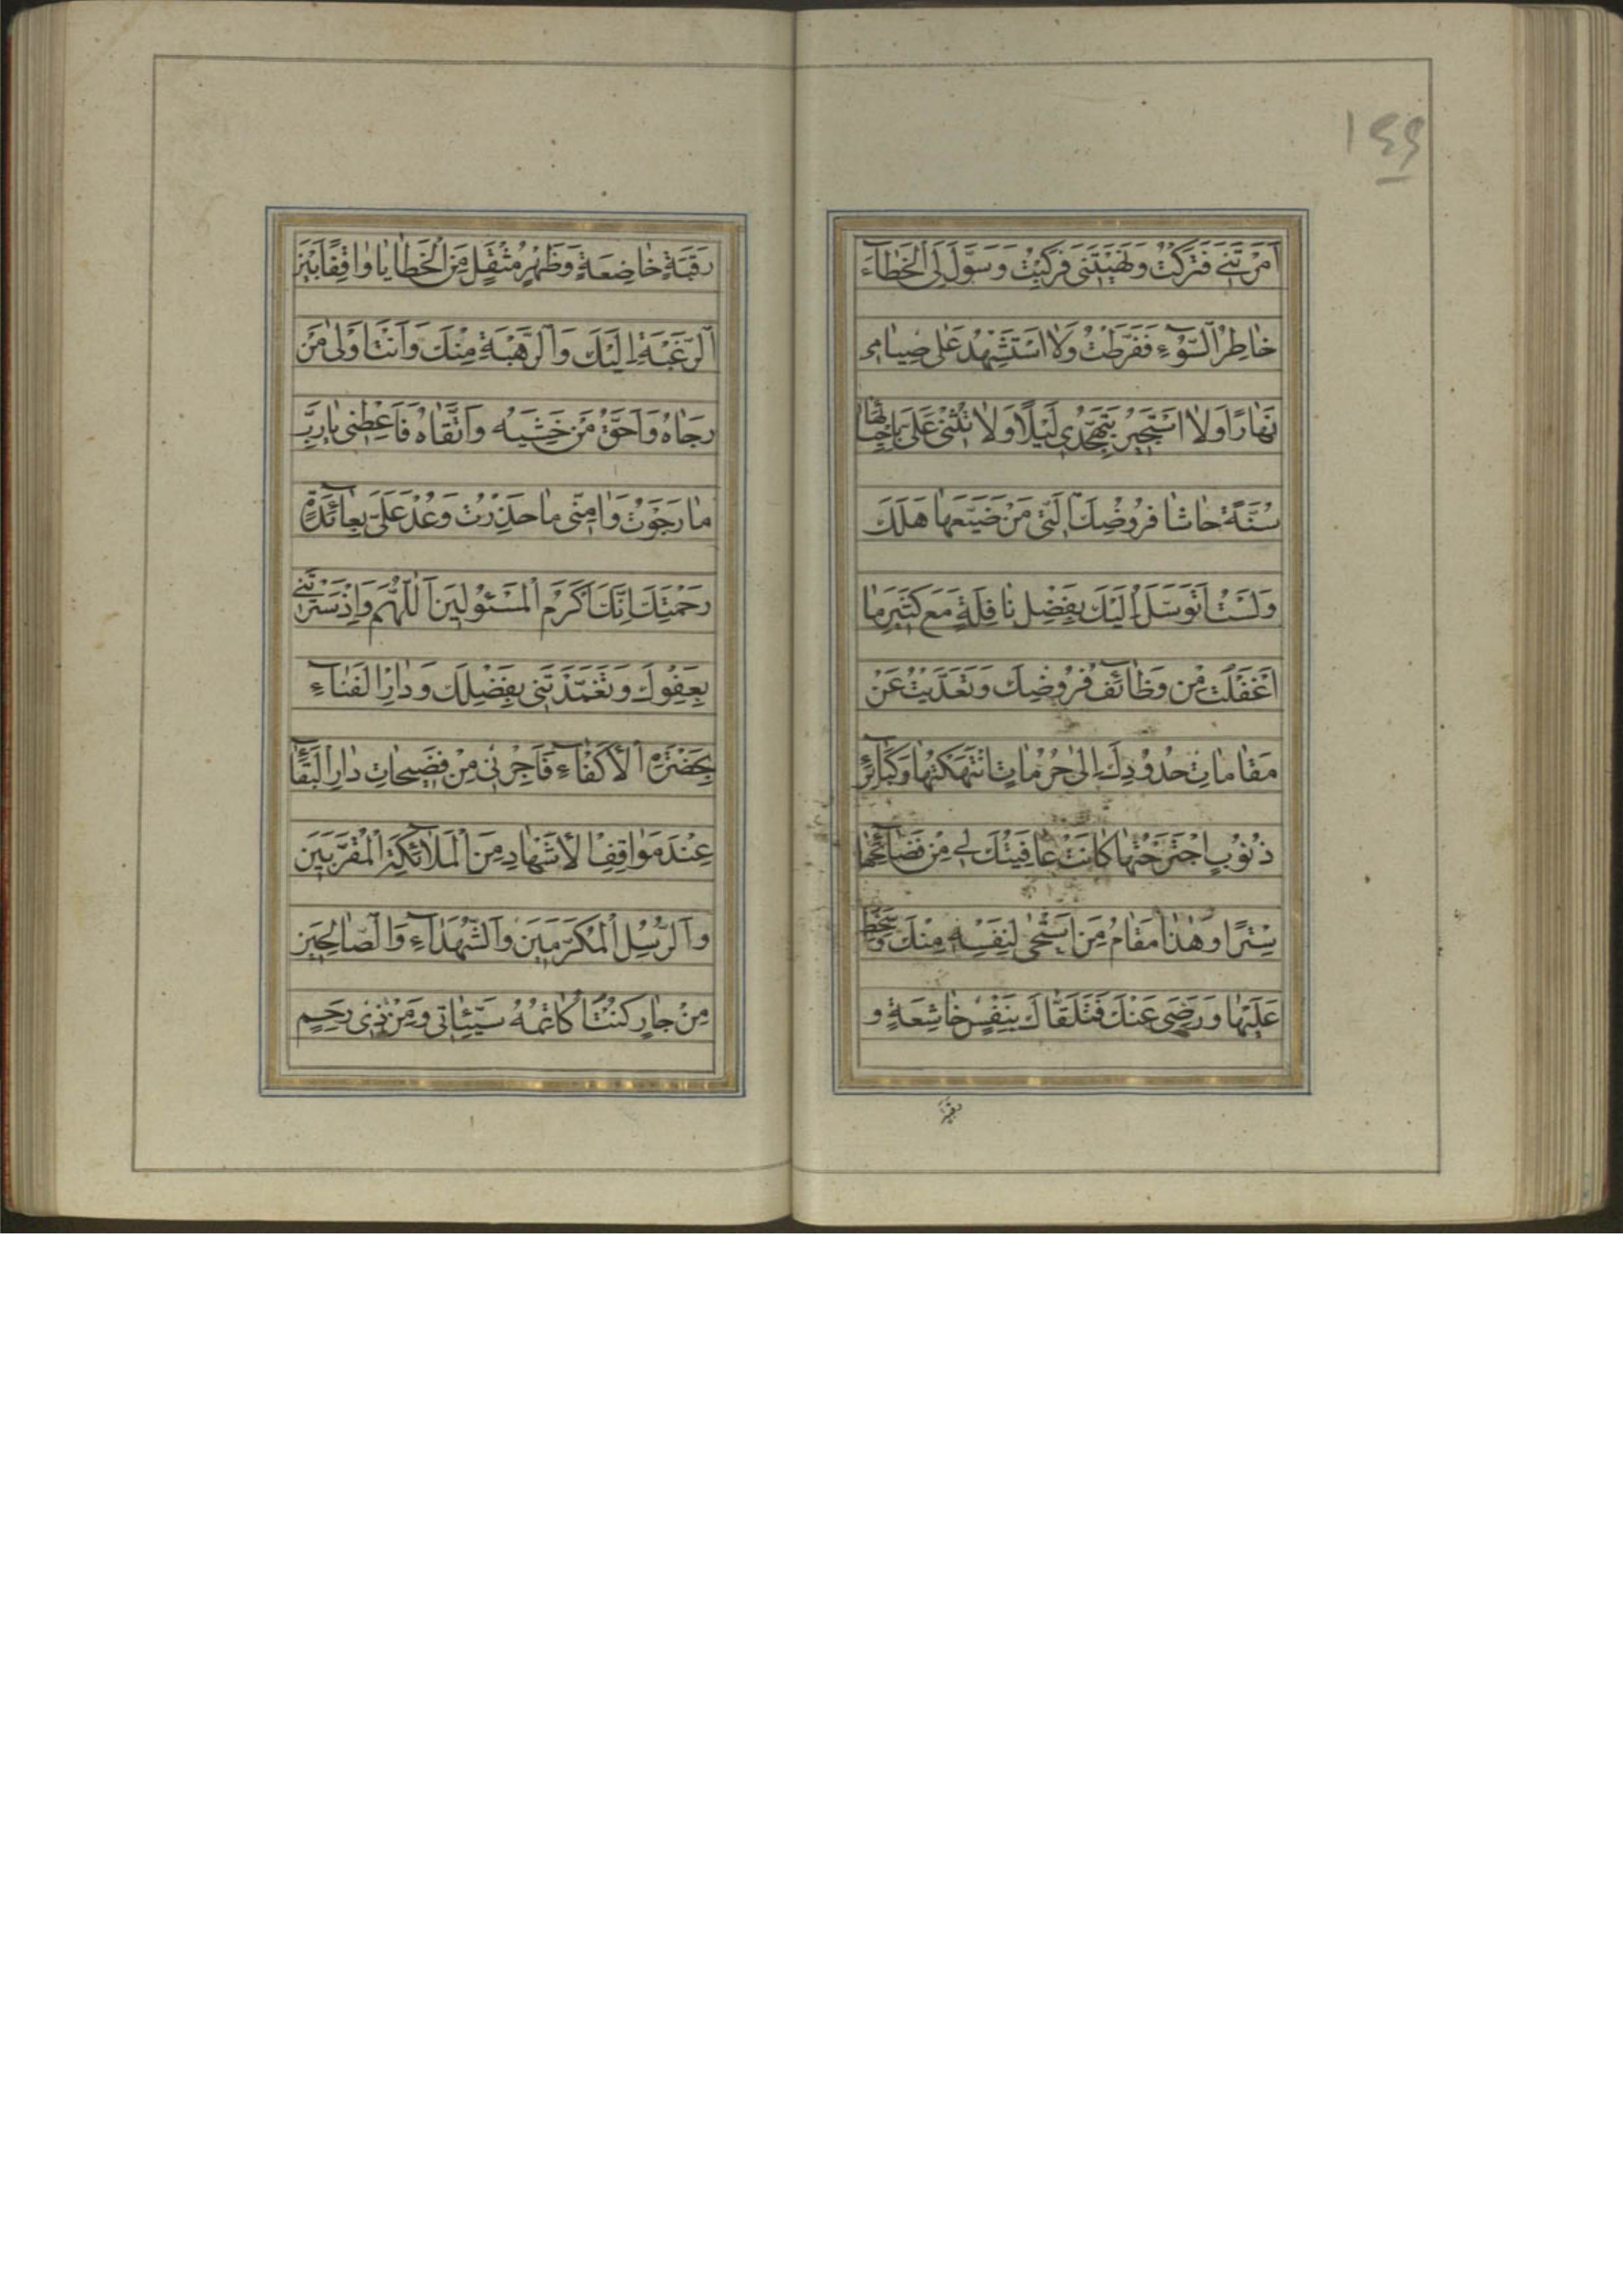 ١٤٩
اَمَرْتَنِی فَتَرَكْتُ وَنَهَیْتَنِی فَرَكِبْتُ وَسَوَّلَ لِیَ الْخَطَآءَ
خَاطِرُ السُّوْءِ فَفَرَّطْتُ وَلَا اَسْتَشْهِدُ عَلٰی صِیَامِی
نَهَارًا وَلَا اَسْتَجِیرُ بِتَهَجُّدِی لَیْلًا وَلَا تُثْنِی عَلَیَّ بِاِحْیَائِهَا
سُنَّةٌ حَاشَا فُرُوضِكَ الَّتِی مَنْ ضَیَّعَهَا هَلَكَ
وَلَسْتُ اَتَوَسَّلُ اِلَیْكَ بِفَضْلِ نَافِلَةٍ مَعَ كَثِیرِ مَا
اَغْفَلْتُ مِنْ وَظَائِفِ فُرُوضِكَ وَتَعَدَّیْتُ عَنْ
مَقَامَاتِ حُدُودِكَ اِلٰی حُرُمَاتٍ انْتَهَكْتُهَا وَكَبَائِرِ
ذُنُوبٍ اجْتَرَحْتُهَا كَانَتْ عَافِیَتُكَ لِی مِنْ فَضَائِحِهَا
سِتْرًا وَهٰذَا مَقَامُ مَنِ اسْتَحْیٰی لِنَفْسِهِ مِنْكَ وَسَخِطَ
عَلَیْهَا وَرَضِیَ عَنْكَ فَتَلَقَّاكَ بِنَفْسٍ خَاشِعَةٍ وَ
رَقَبَةٍ خَاضِعَةٍ وَظَهْرٍ مُثْقَلٍ مِنَ الْخَطَایَا وَاقِفًا بَیْنَ
الرَّغْبَةِ اِلَیْكَ وَالرَّهْبَةِ مِنْكَ وَاَنْتَ اَوْلٰی مَنْ
رَجَاهُ وَاَحَقُّ مَنْ خَشِیَهُ وَاتَّقَاهُ فَاَعْطِنِی یَا رَبِّ
مَا رَجَوْتُ وَاٰمِنِّی مَا حَذِرْتُ وَعُدْ عَلَیَّ بِعَائِدَةِ
رَحْمَتِكَ اِنَّكَ اَكْرَمُ الْمَسْئُولِینَ اَللّٰهُمَّ وَاِذْ سَتَرْتَنِی
بِعَفْوِكَ وَتَغَمَّدْتَنِی بِفَضْلِكَ وَدَارِ الْفَنَاءِ
بِحَضْرَةِ الْاَكْفَاءِ فَاَجِرْنِی مِنْ فَضِیحَاتِ دَارِ الْبَقَاءِ
عِنْدَ مَوَاقِفِ الْاَشْهَادِ مِنَ الْمَلَائِكَةِ الْمُقَرَّبِینَ
وَالرُّسُلِ الْمُكَرَّمِینَ وَالشُّهَدَاءِ وَالصَّالِحِینَ
مِنْ جَارٍ كُنْتُ اُكَاتِمُهُ سَیِّئَاتِی وَمِنْ ذِی رَحِمٍ